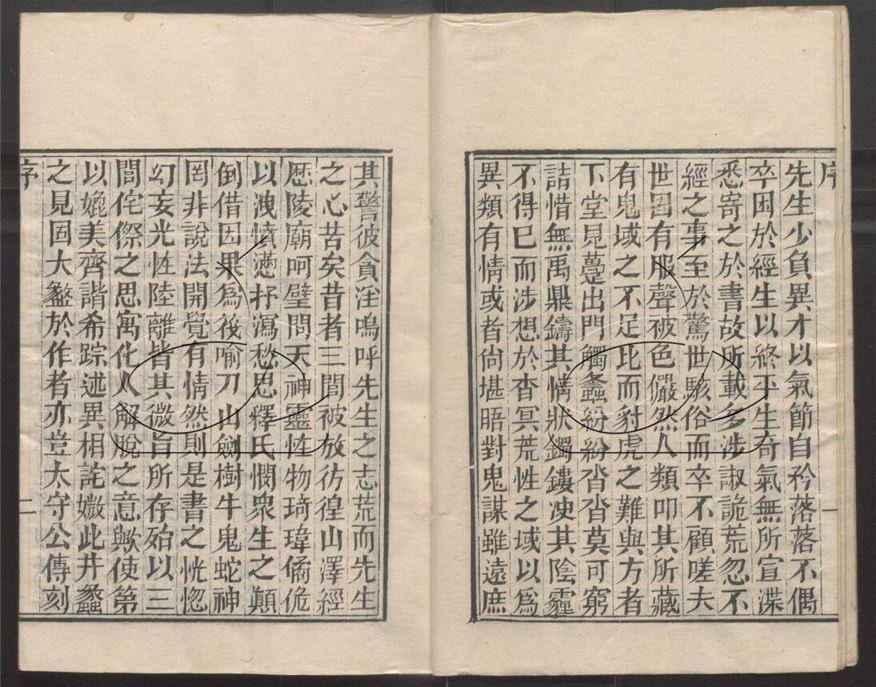 序
先生少負異才以氣節自矜落落不偶
卒困於經生以終平生奇氣無所宣渫
悉寄之於書故所載多涉諔詭荒忽不
經之事至於驚世駭俗而卒不顧嗟夫
世固有服聲被色儼然人類叩其所藏
有鬼蜮之不足比而豺虎之難與方者
下堂見蠆出門觸蠭紛紛沓沓莫可窮
詰惜無禹鼎鑄其情狀鐲鏤决其陰霾
不得已而涉想於杳冥荒怪之域以爲
異類有情或者尙堪晤對鬼謀雖遠庶
一
其警彼貪淫嗚呼先生之志荒而先生
之心苦矣昔者三閭被放彷徨山澤經
歷陵廟呵壁問天神靈怪物琦瑋僪佹
以洩憤懣抒瀉愁思釋氏憫衆生之顚
倒借因果爲筏喻刀山劍樹牛鬼蛇神
罔非說法開覺有情然則是書之恍惚
幻妄光怪陸離皆其微旨所存殆以三
閭侘傺之思寓化人解脫之意歟使第
以媲美齊諧希踪述異相詫媺此井蠡
之見固大盭於作者亦豈太守公傳刻
序
二